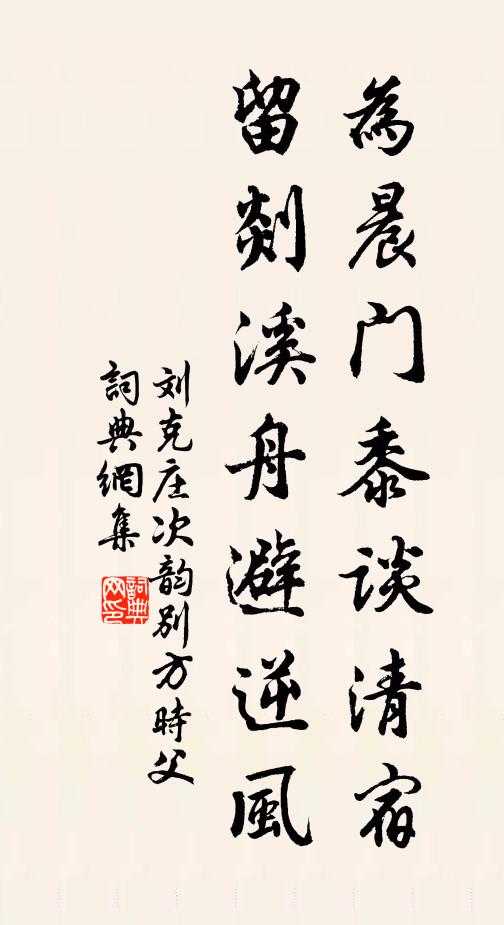 為晨门黍谈清宿
留剡溪舟避逆風
刘克庄次韵别方時父
詞典網集
詞典网印